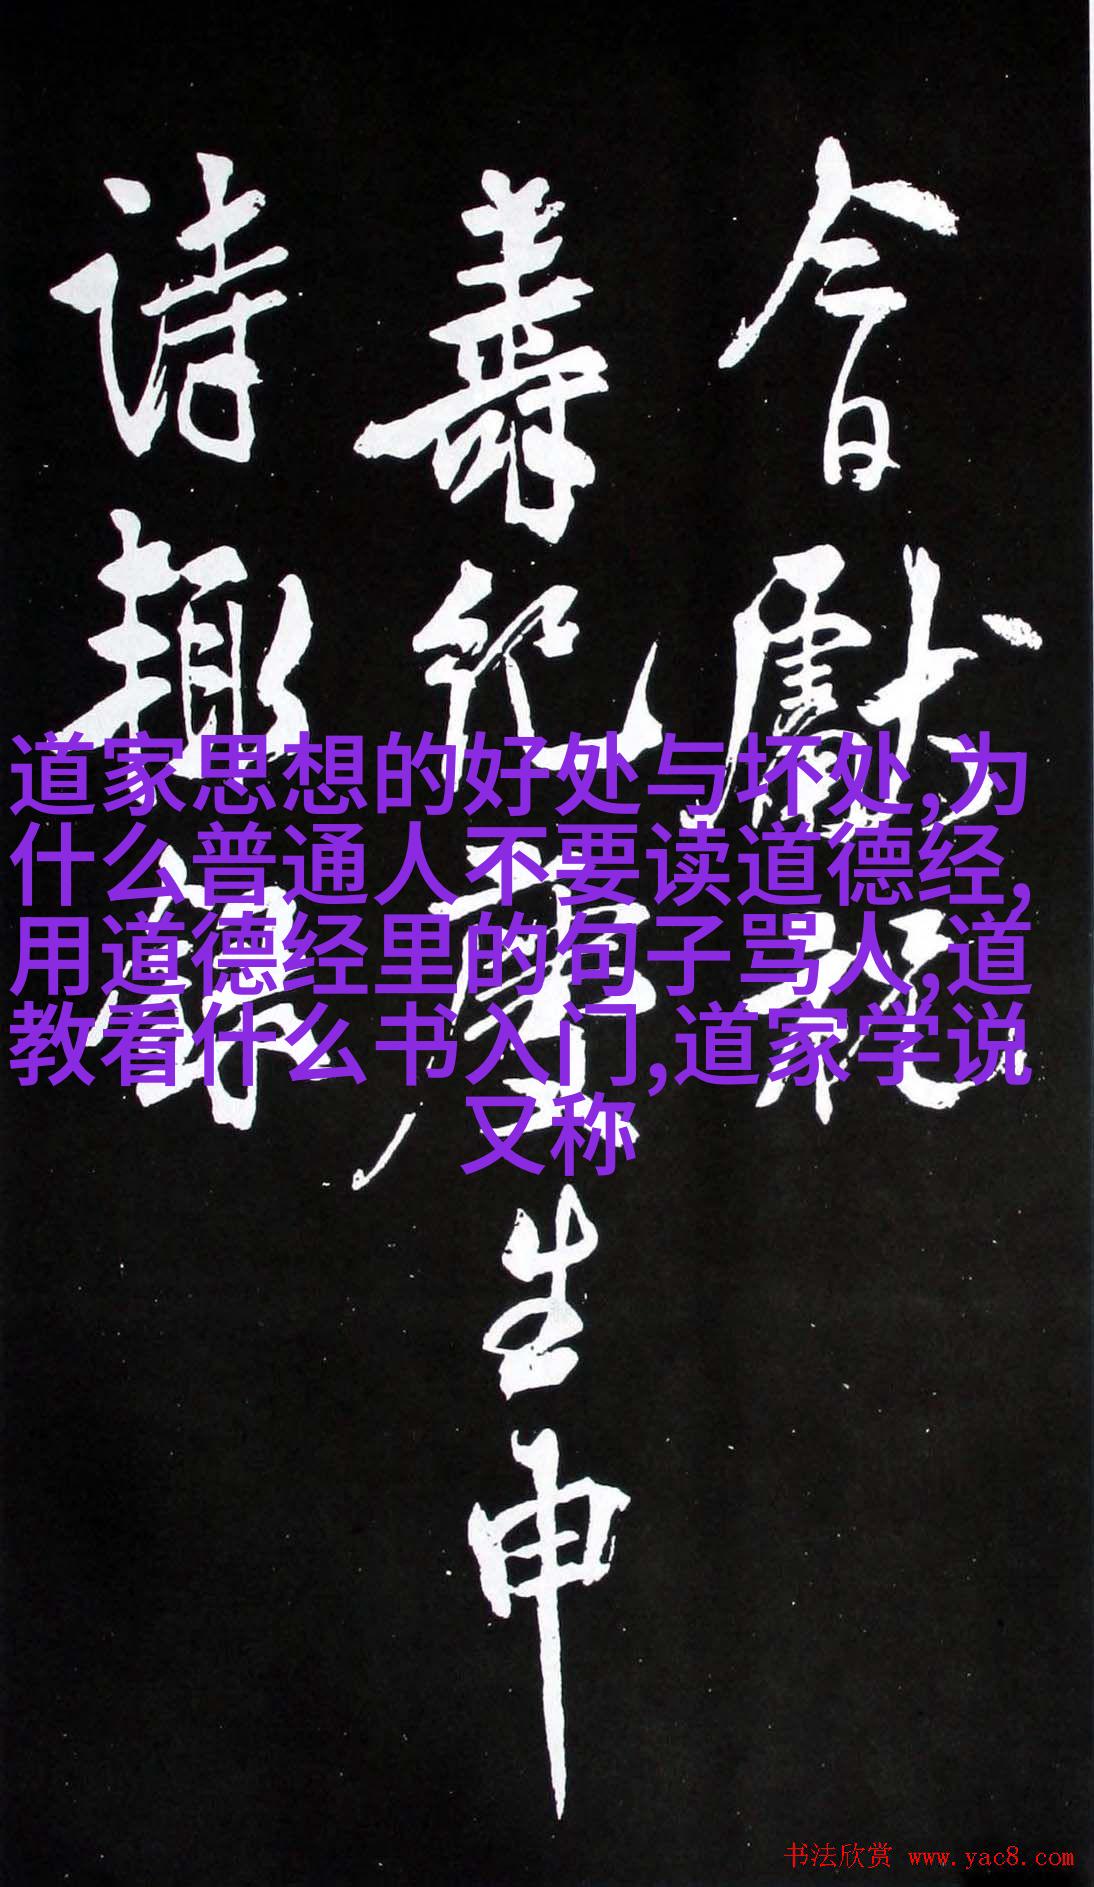 道家思想的好处与坏处,为
什么普通人不要读道德经,
用道德经里的句子骂人,道
教看什么书入门,道家学说
又称
今日獻祝
壽慶生申
詩趣
书法欣赏 www.yac8.com